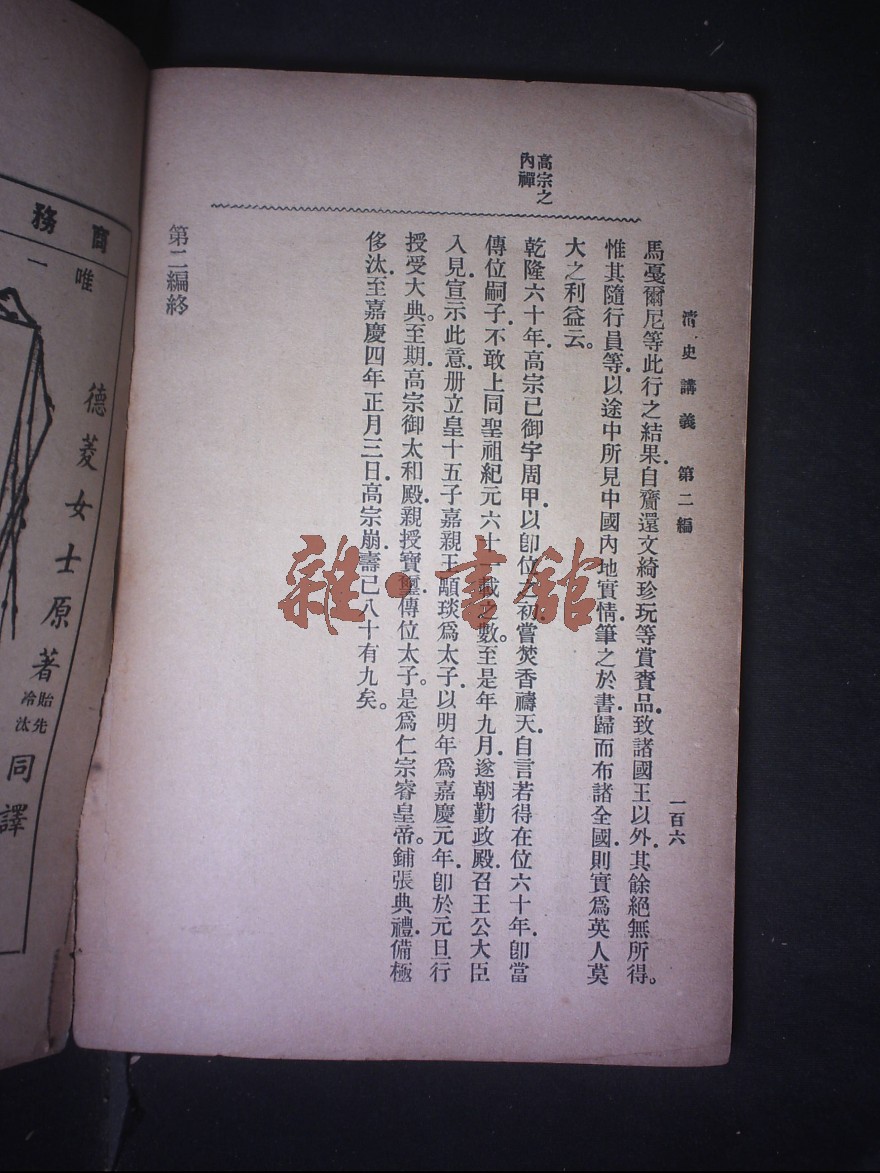 清史講義 第二編
一百六
馬戞爾尼等此行之結果自齎還文綺珍玩等賞賚品致諸國王以外其餘絕無所得。
惟其隨行員等以途中所見中國內地實情筆之於書歸而布諸全國則實爲英人莫
大之利益云。
高宗之
內禪
乾隆六十年高宗已御宇周甲以卽位之初嘗焚香禱天自言若得在位六十年卽當
傳位嗣子不敢上同聖祖紀元六十一載之數。至是年九月遂朝勤政殿召王公大臣
入見宣示此意册立皇十五子嘉親王顒琰爲太子以明年爲嘉慶元年卽於元旦行
授受大典。至期高宗御太和殿親授寶璽傳位太子。是爲仁宗睿皇帝。鋪張典禮備極
侈汰至嘉慶四年正月三日高宗崩壽已八十有九矣。
第二編終
雜·書館
商務
唯一
德菱女士原著
貽先
冷汰
同譯